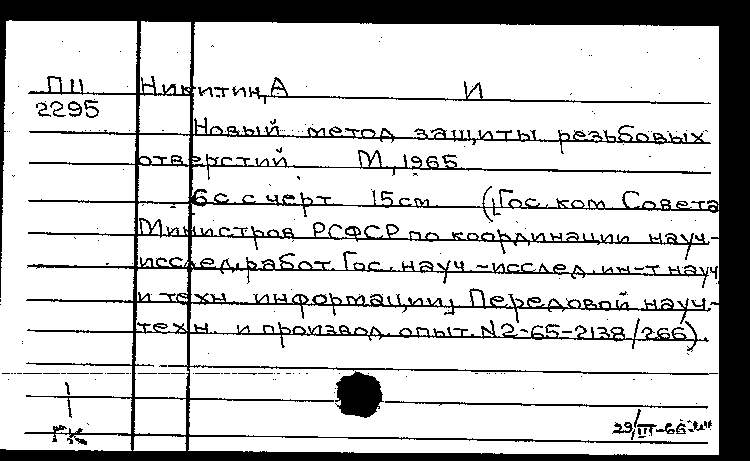 П11 Никитин, А И
2295
Новый метод защиты резьбовых
отверстий. М, 1965
6 с. с черт 15 см ([Гос. ком Совета
Министров РСФСР по координации науч.-
исслед. работ. Гос. науч.-исслед. ин-т науч
и техн. информации] Передовой науч.-
техн. и производ. опыт. N2-65-2138/266).
ГК
29/III-66